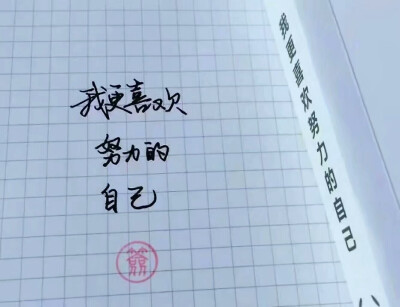 我更喜欢
努力的
自己
我更喜欢努力的自己